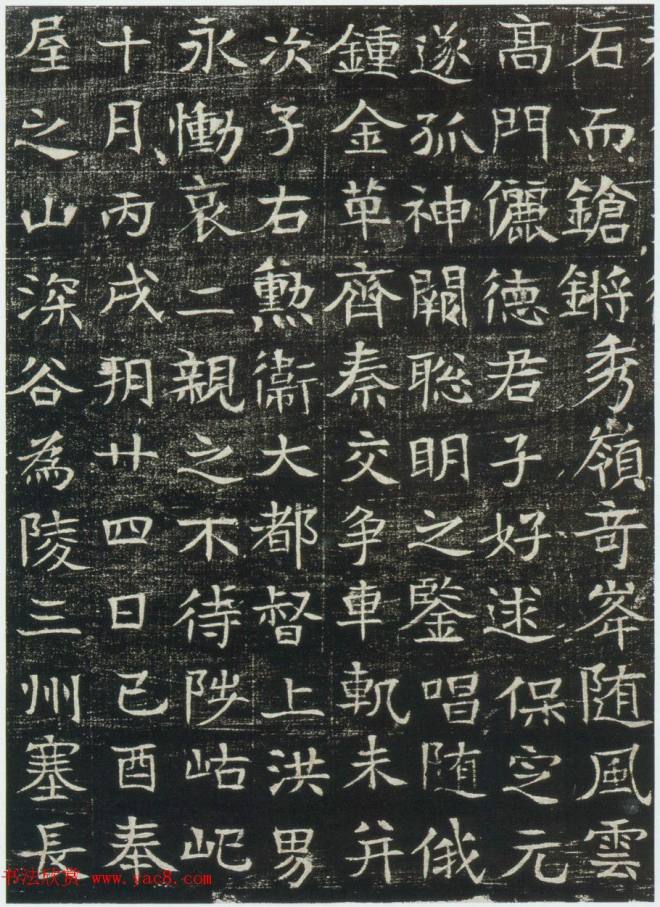 石而鎗鏘秀嶺竒峯随風雲
髙門儷德君子好逑保㝎元
遂孤神闕聡明之鑒唱随俄
鍾金革齊秦交争車軌未并
次子右勲衛大都督上洪男
永慟哀二親之不待陟岵屺
十月丙戌朔廿四日己酉奉
屋之山深谷為陵三州塞長
书法欣赏 www.yac8.com